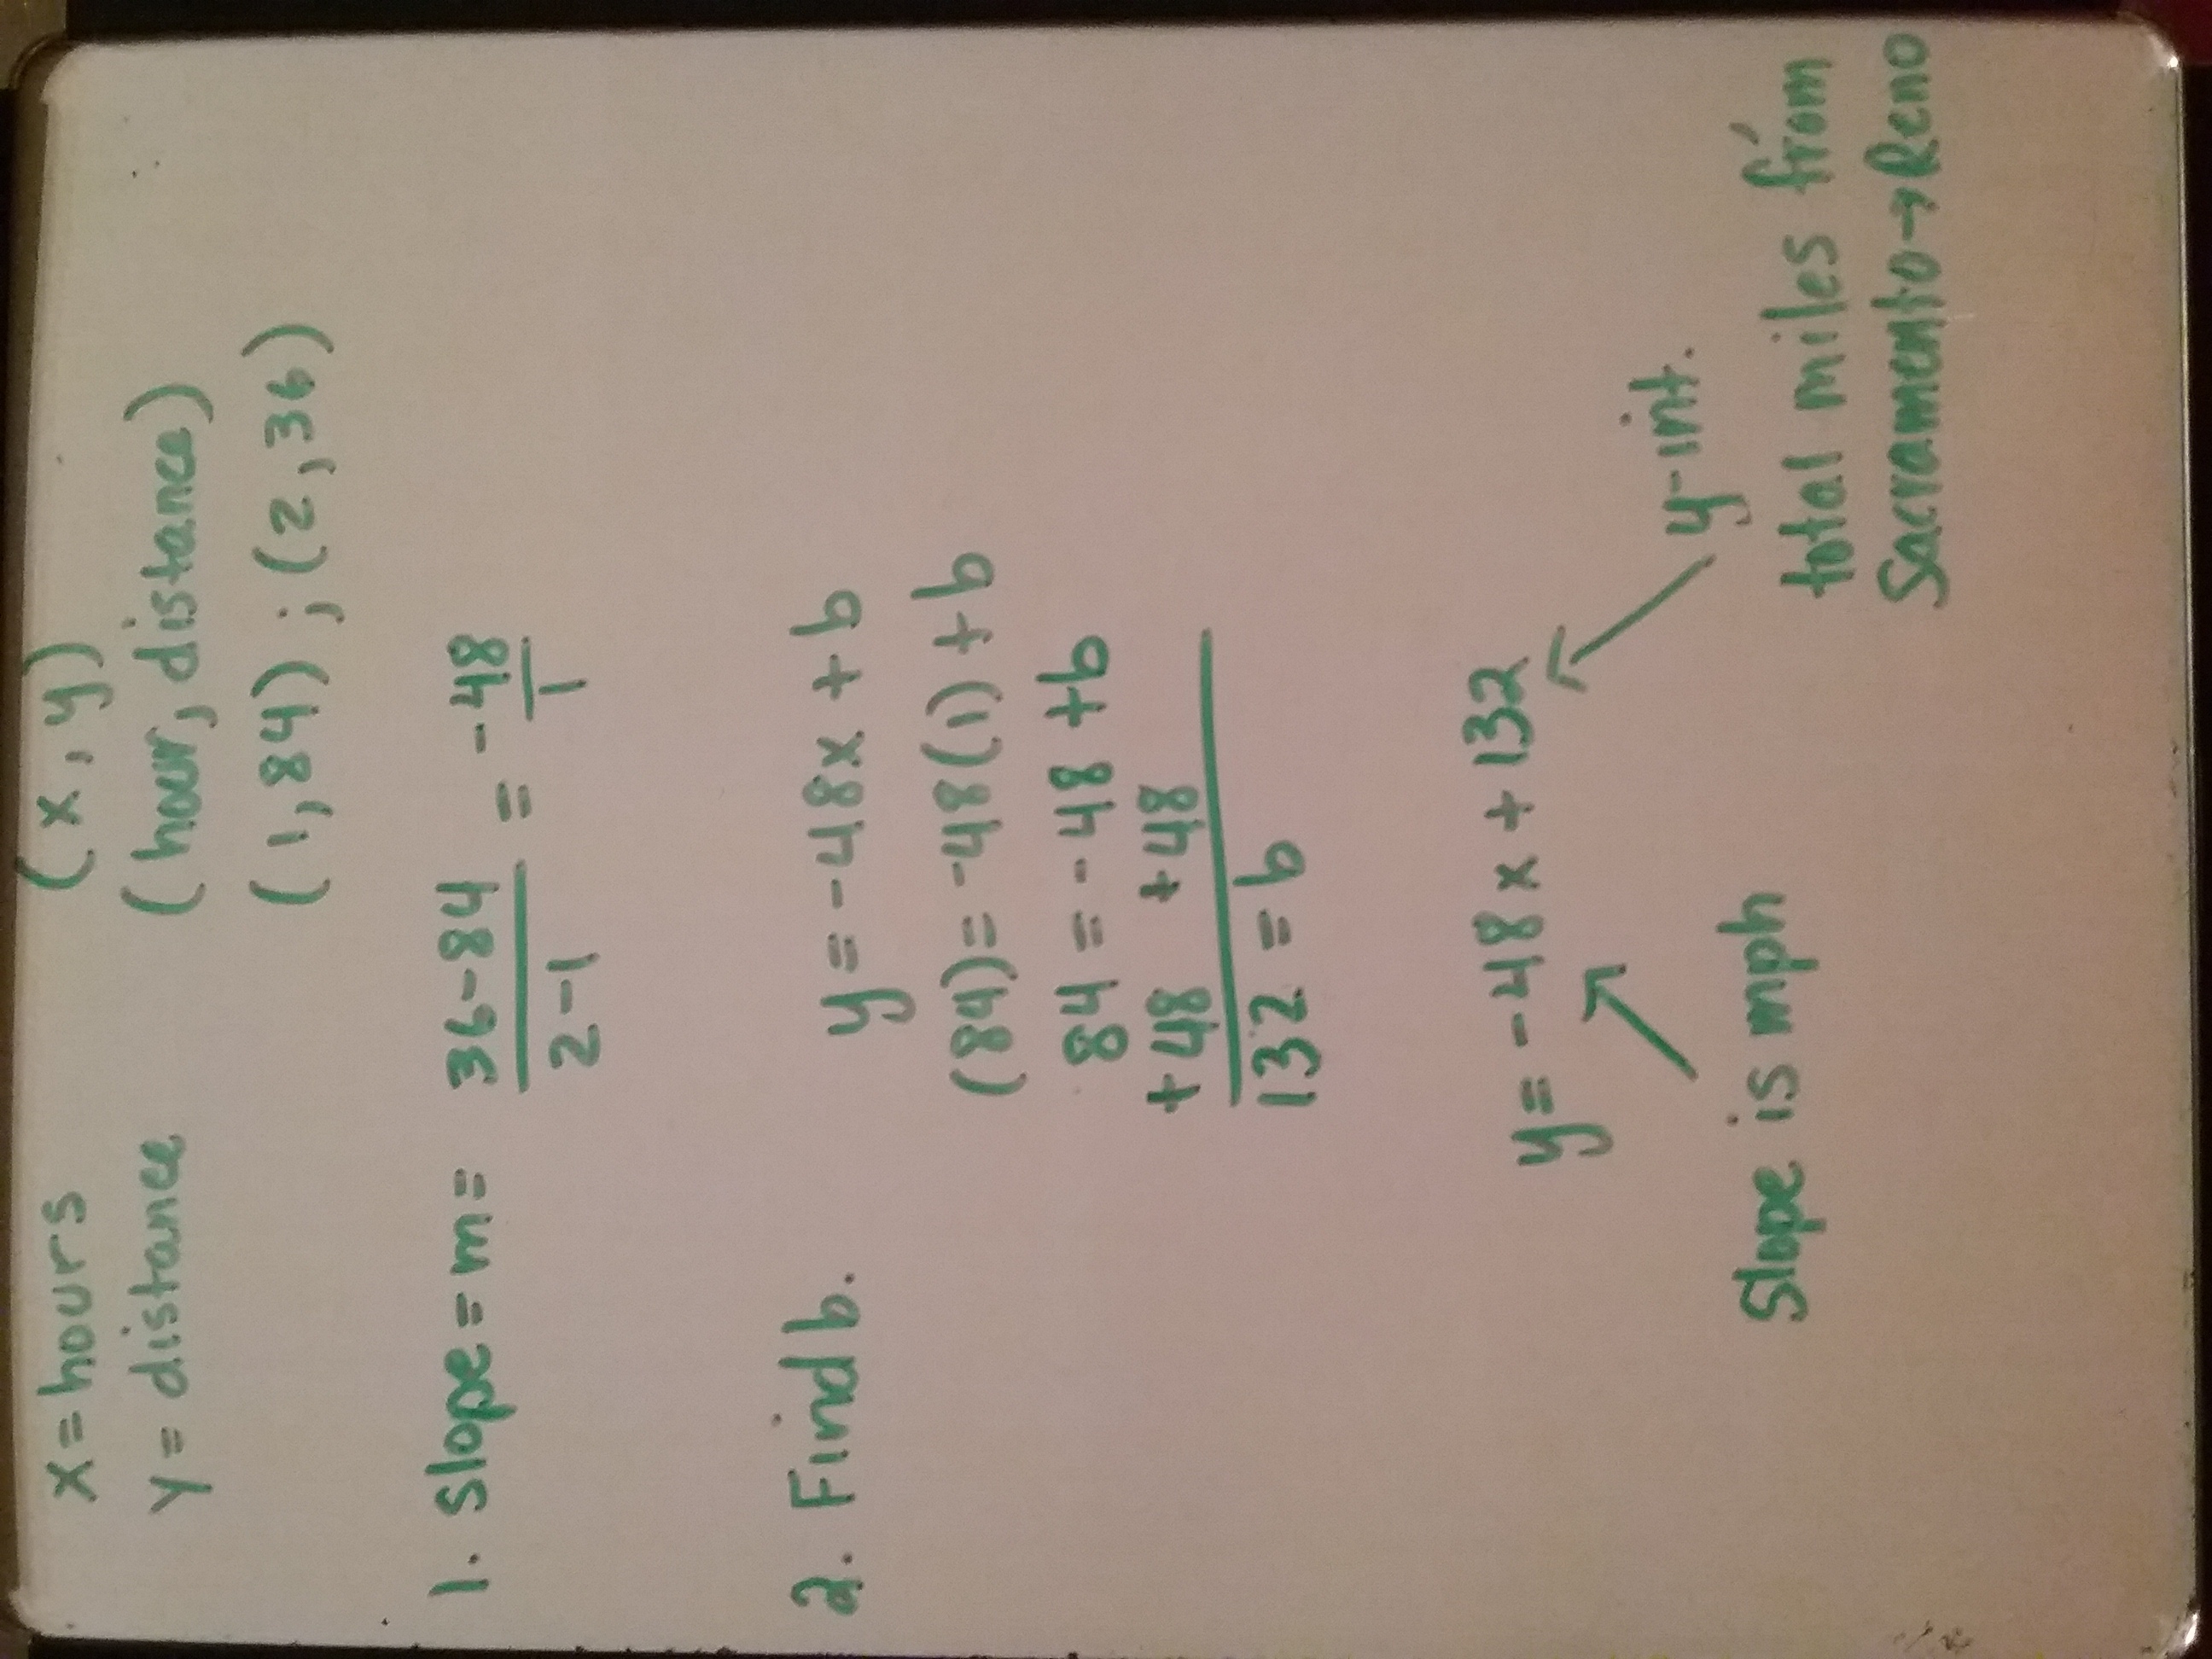 x = hours (x, y)
y = distance (hour, distance)
(1, 84) ; (2, 36)
1. Slope = m = 36-84 / 2-1 = -48/1
2. Find b. y = -48x + b
(84) = -48(1) + b
84 = -48 + b
+48 +48
132 = b
y = -48x + 132
Slope is mph
y-int.
total miles from
Sacramento→Reno